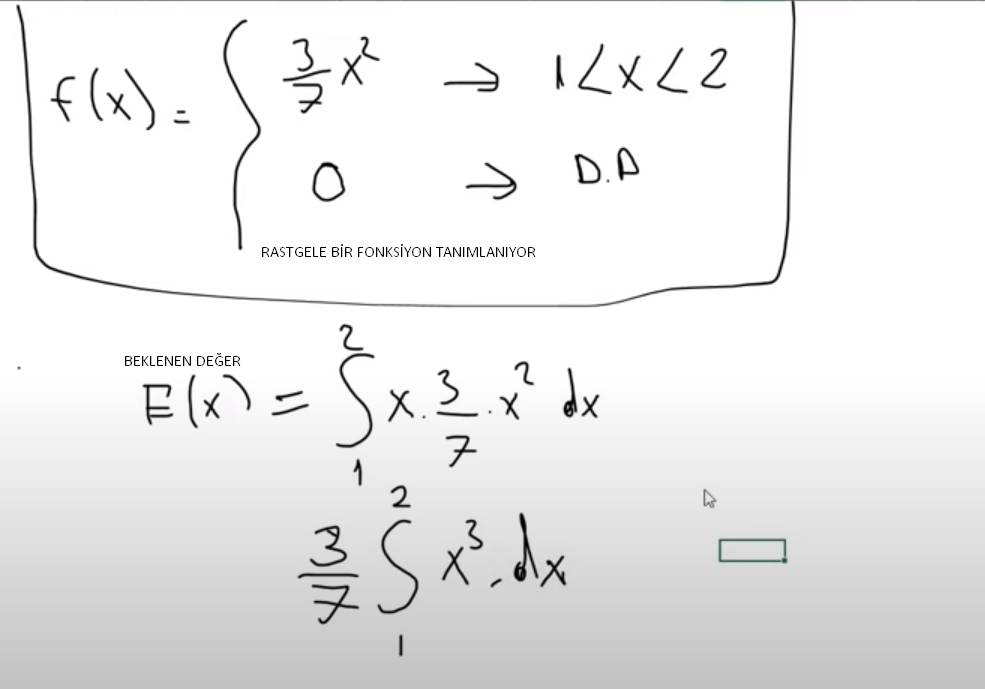 f(x) = { 3/7 x² → 1<x<2
0 → D.D
RASTGELE BİR FONKSİYON TANIMLANIYOR
BEKLENEN DEĞER
E(x) = ∫₁² x . 3/7 . x² dx
3/7 ∫₁² x³ . dx